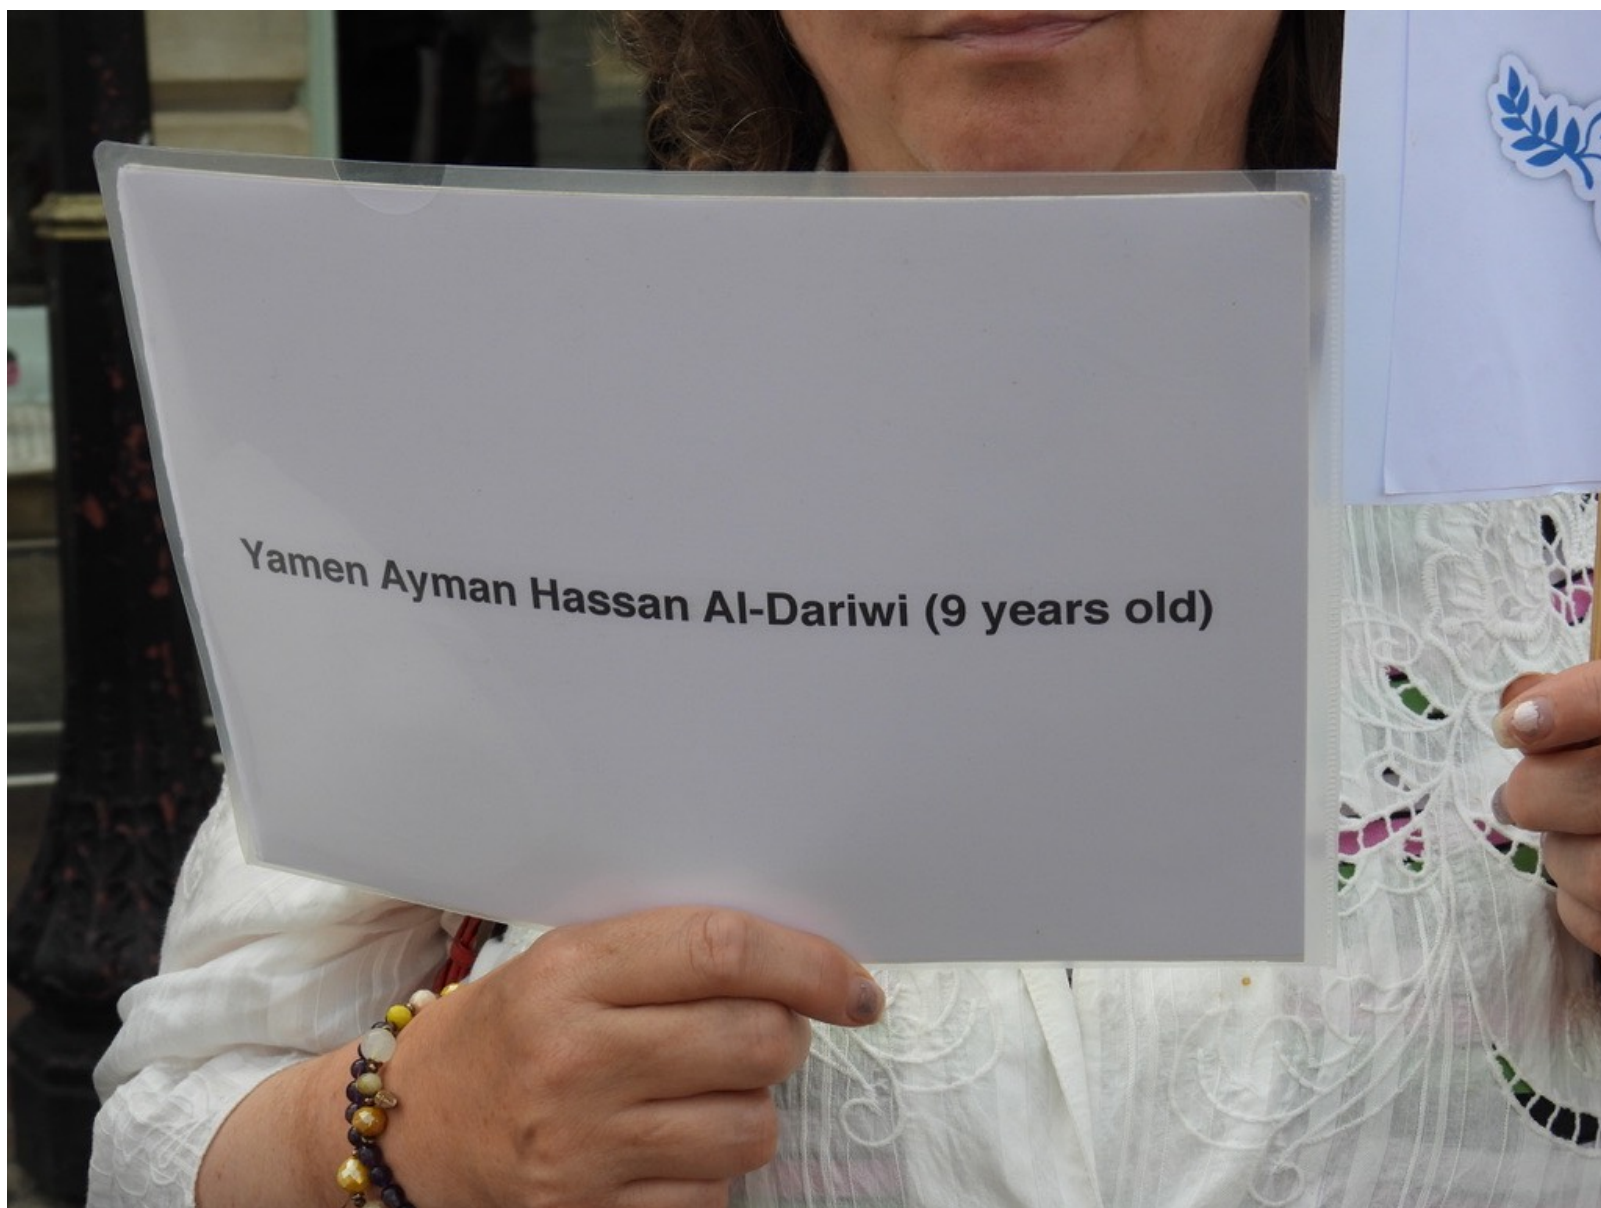 Yamen Ayman Hassan Al-Dariwi (9 years old)